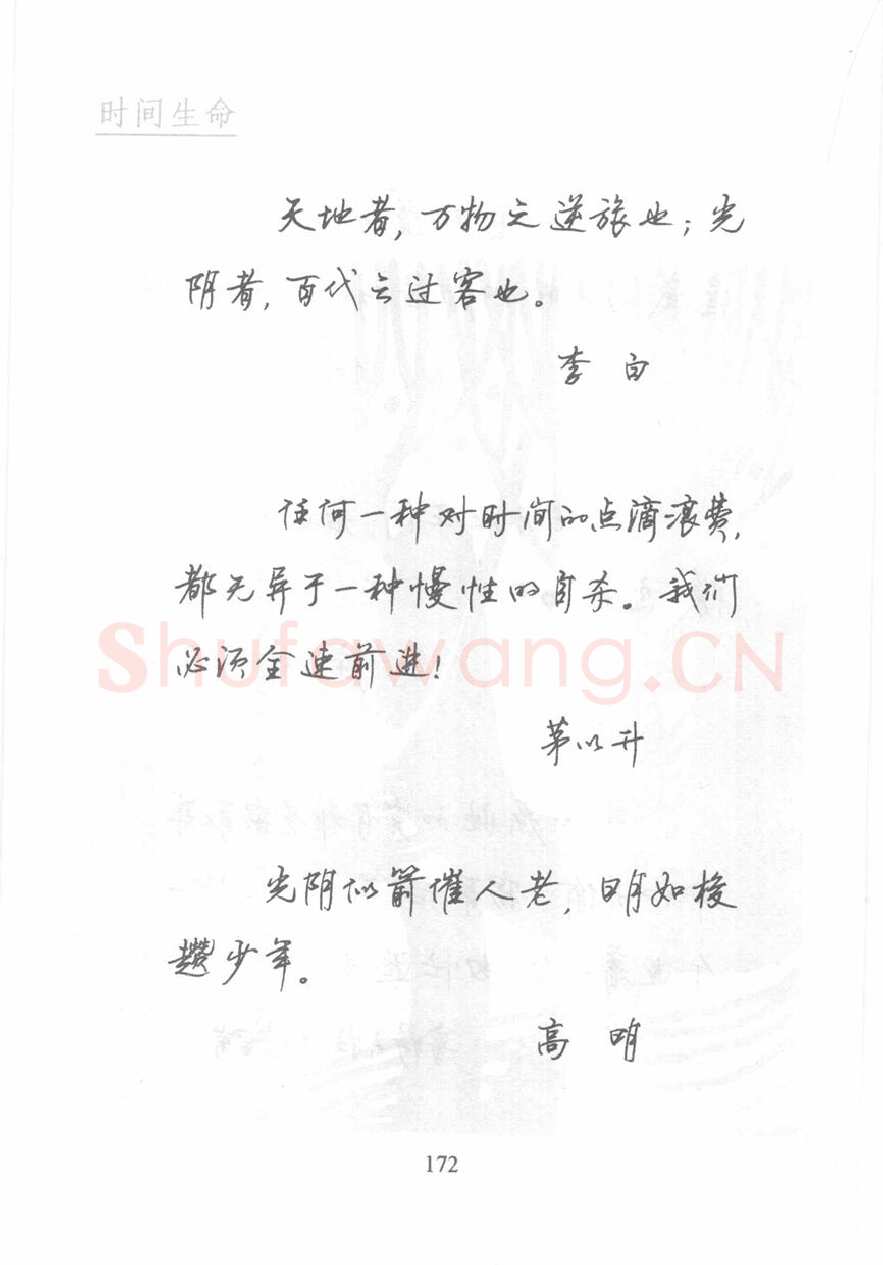 时间生命
天地者，万物之逆旅也；光
阴者，百代之过客也。
李白
任何一种对时间的点滴浪费，
都无异于一种慢性的自杀。我们
必须全速前进！
茅以升
光阴似箭催人老，日月如梭
趱少年。
高明
172
Shufawang.CN